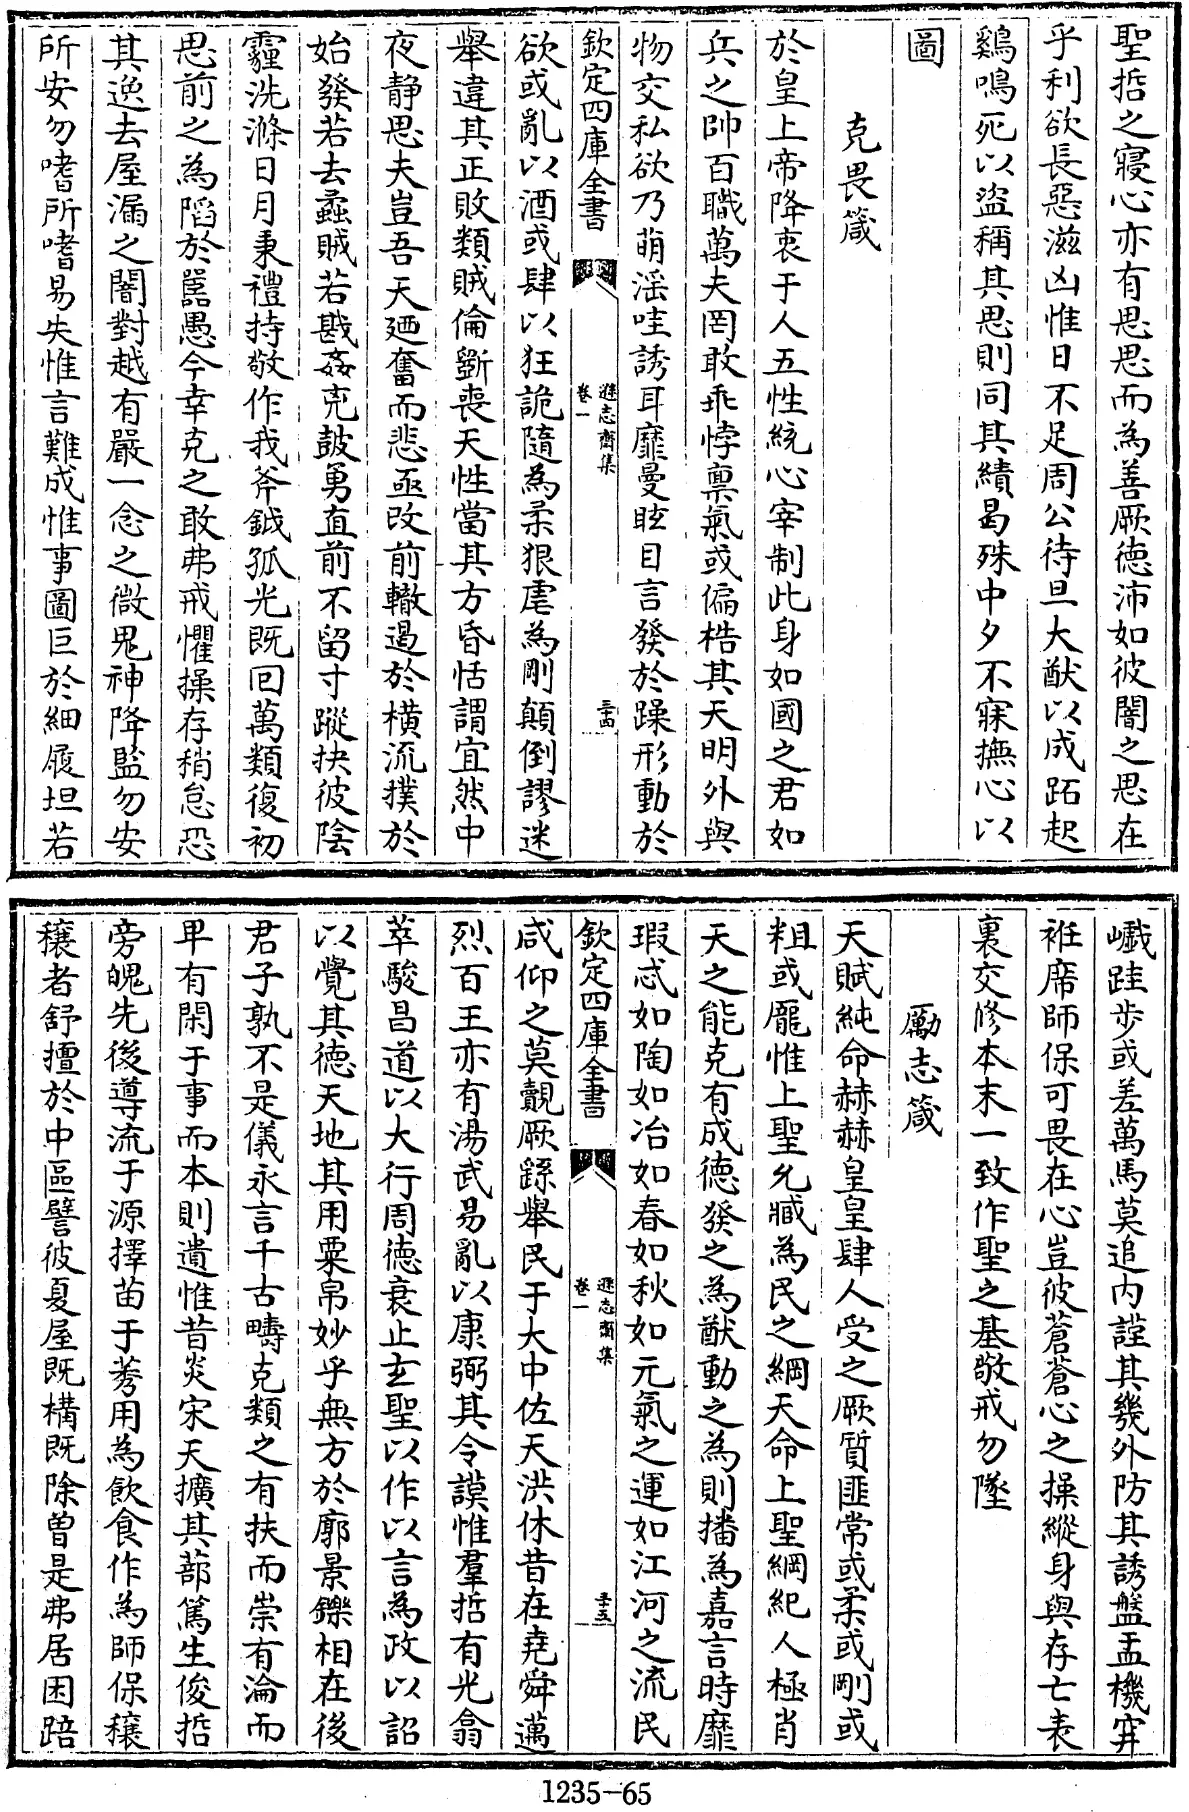 聖哲之寢心亦有思思而為善厥德沛如彼闇之思在
乎利欲長惡滋凶惟日不足周公待旦大猷以成跖起
鷄鳴死以盜稱其思則同其績曷殊中夕不寐撫心以
圖
克畏箴
於皇上帝降衷于人五性統心宰制此身如國之君如
兵之帥百職萬夫罔敢乖悖禀氣或偏梏其天明外與
物交私欲乃萌滛哇誘耳靡曼眩目言發於躁形動於
欽定四庫全書
遜志齋集
卷一
三十四
欲或亂以酒或肆以狂詭隨為柔狠虐為剛顛倒謬迷
舉違其正敗類賊倫斵喪天性當其方昏恬謂宜然中
夜靜思夫豈吾天廼奮而悲亟改前轍遏於橫流撲於
始發若去蟊賊若戡姦兇鼓勇直前不留寸蹤抉彼陰
霾洗滌日月秉禮持敬作我斧鉞孤光既回萬類復初
思前之為陷於嚚愚今幸克之敢弗戒懼操存稍怠恐
其逸去屋漏之闇對越有嚴一念之微鬼神降監勿安
所安勿嗜所嗜易失惟言難成惟事圖巨於細履坦若
巇跬步或差萬馬莫追内謹其幾外防其誘盤盂機穽
袵席師保可畏在心豈彼蒼蒼心之操縱身與存亡表
裏交修本末一致作聖之基敬戒勿墜
勵志箴
天賦純命赫赫皇皇肆人受之厥質匪常或柔或剛或
粗或龎惟上聖允臧為民之綱天命上聖綱紀人極肖
天之能克有成德發之為猷動之為則播為嘉言時靡
瑕忒如陶如冶如春如秋如元氣之運如江河之流民
欽定四庫全書
遜志齋集
卷一
三十五
咸仰之莫覿厥繇舉民于大中佐天洪休昔在堯舜邁
烈百王亦有湯武易亂以康弼其令謨惟羣哲有光翕
萃駿昌道以大行周德衰止玄聖以作以言為政以詔
以覺其德天地其用粟帛妙乎無方於廓景鑠相在後
君子孰不是儀永言千古疇克類之有扶而崇有淪而
卑有閑于事而本則遺惟昔炎宋天擴其蔀篤生俊哲
旁魄先後導流于源擇苗于莠用為飲食作為師保穰
穰者舒擅於中區譬彼夏屋既構既除曾是弗居困踣
1235-65